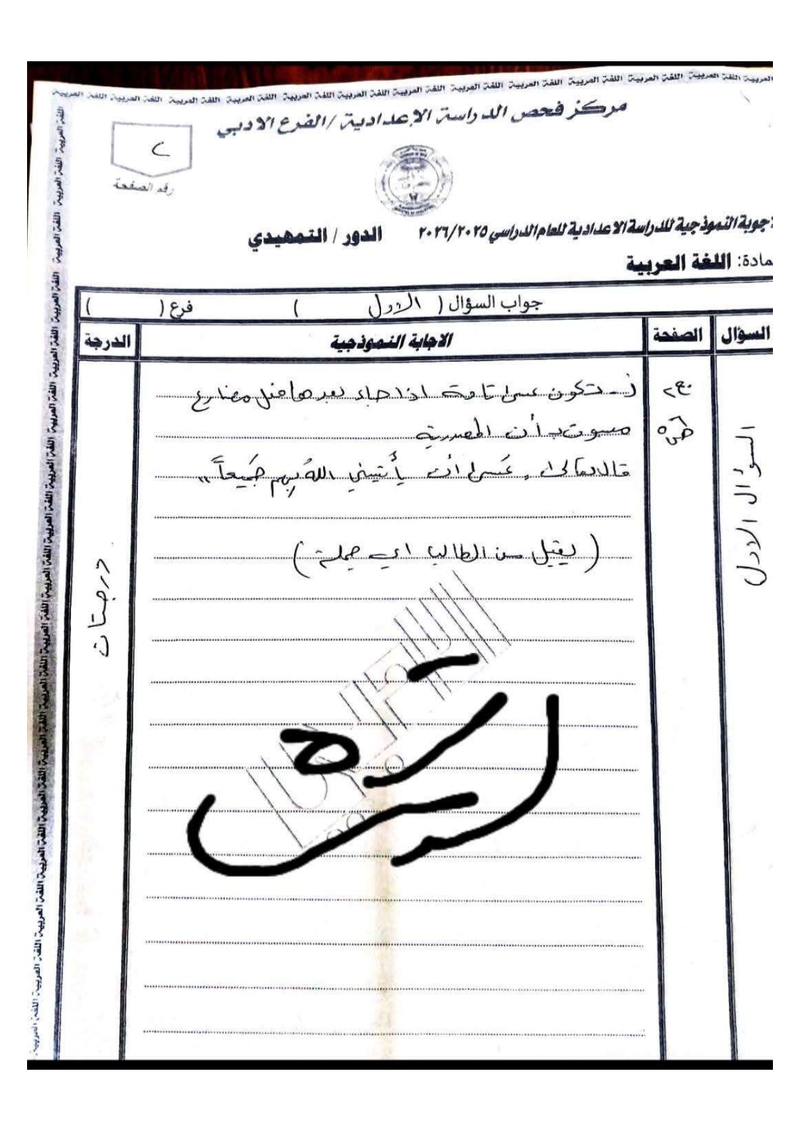 اللغة العربية اللغة العربية اللغة العربية اللغة العربية اللغة العربية اللغة العربية اللغة العربية اللغة العربية اللغة العربية اللغة العربية اللغة العربية اللغة العربية
مركز فحص الدراسة الإعدادية /الفرع الادبي
٢
رقم الصفحة
جوبة النموذجية للدراسة الاعدادية للعام الدراسي ٢٠٢٦/٢٠٢٥ الدور / التمهيدي
مادة: اللغة العربية
جواب السؤال ( الاول ) فرع ( )
السؤال الصفحة الاجابة النموذجية الدرجة
السؤال الاول
تكون عسى تامة اذا جاء بعدها فعل مضارع
مسبوق بـ أن المصدرية
قال تعالى: عَسى أن يأتيني اللهُ بهم جَميعاً"
( يقبل من الطالب اي جملة )
درجتان